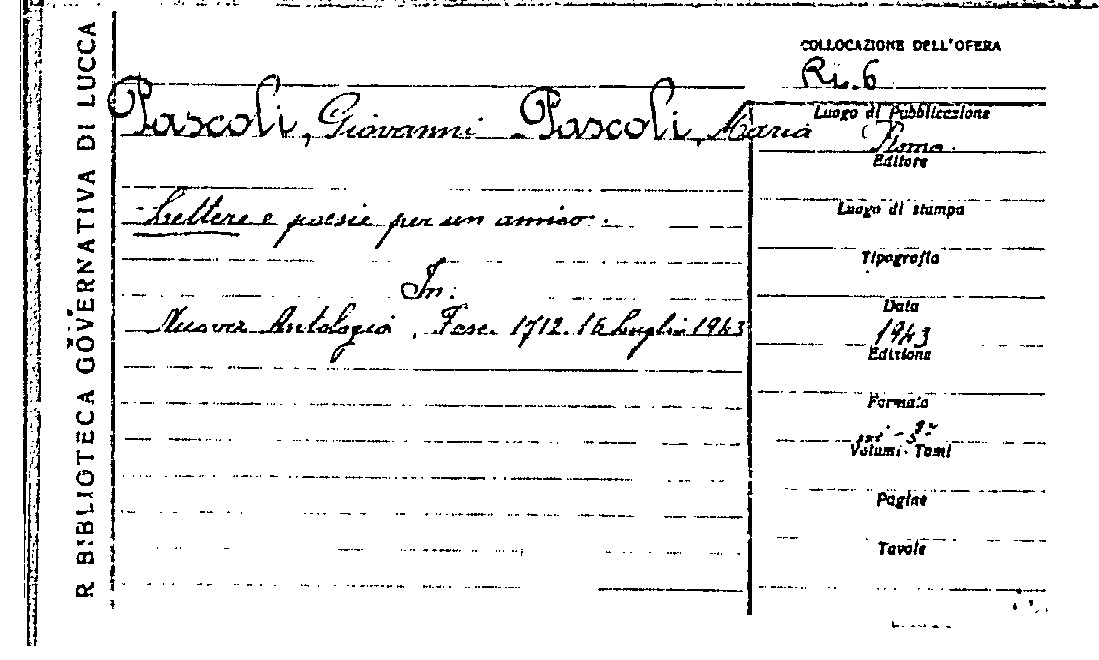 R BIBLIOTECA GOVERNATIVA DI LUCCA
COLLOCAZIONE DELL'OPERA
Ri.6
Pascoli, Giovanni Pascoli, Maria
Luogo di Pubblicazione
Roma
Editore
Lettere e poesie per un amico.
Luogo di stampa
Tipografia
In:
Data
Nuova Antologia, Fasc. 1712. 16 Luglio 1943
1943
Edizione
Formato
8º
Volumi-Tomi
Pagine
Tavole